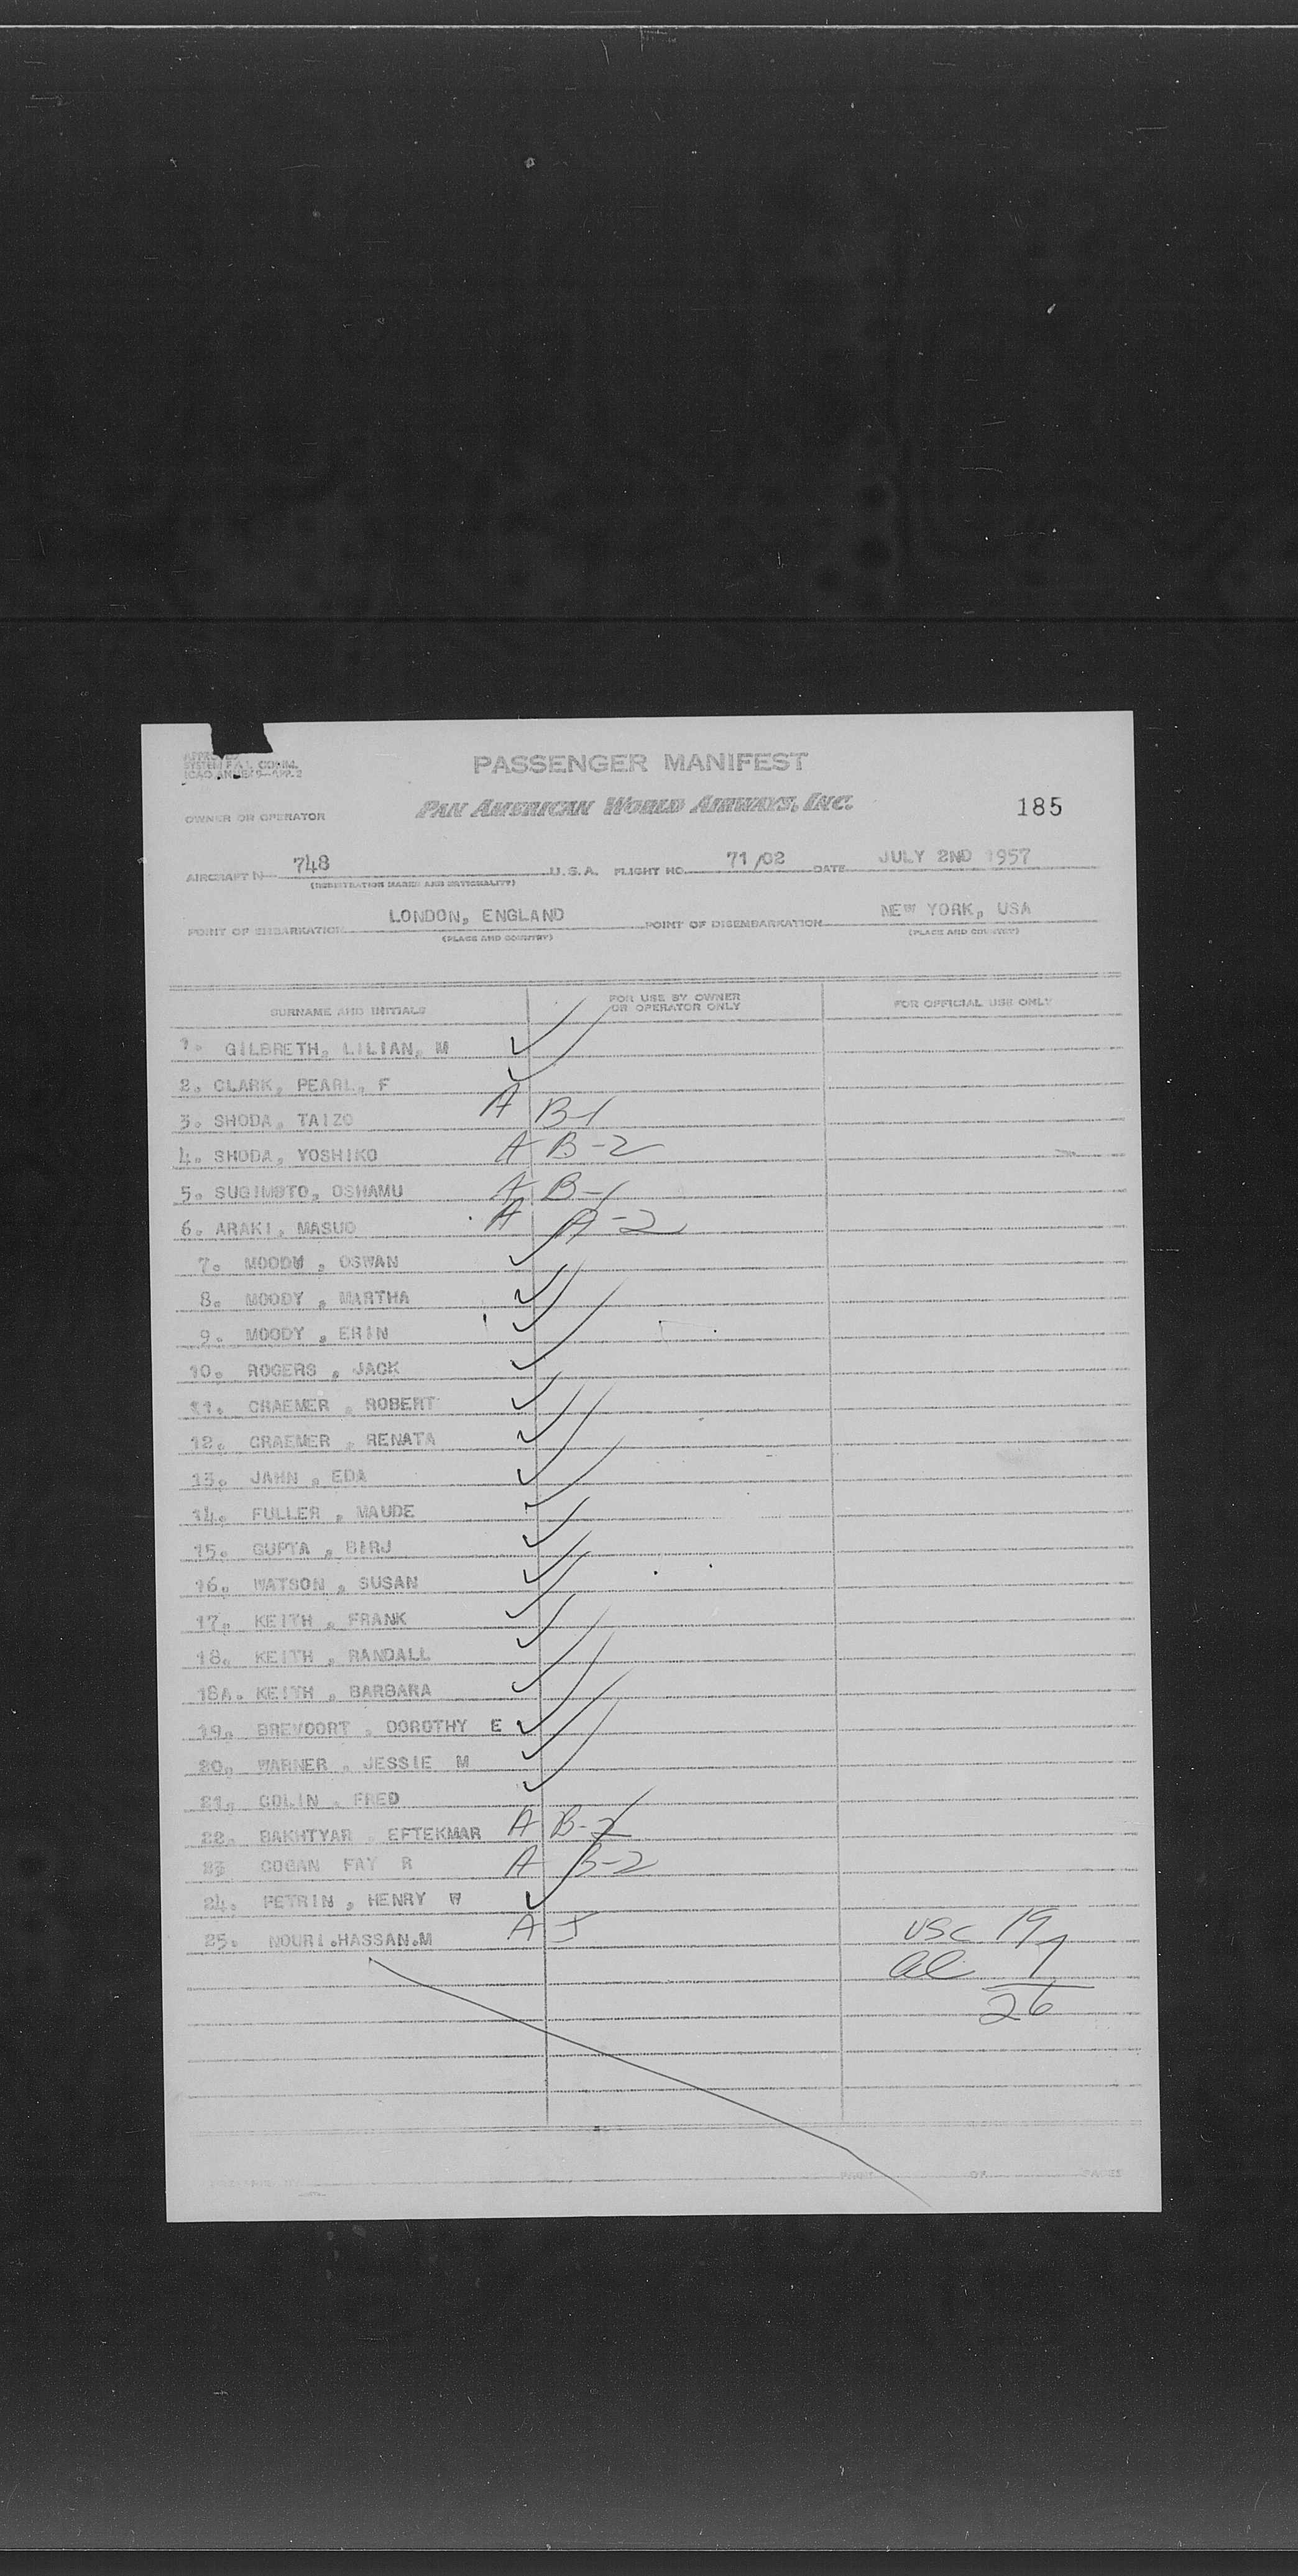 APPROVED
SYSTEM F.A.L. COMM.
ICAO ANNEX 9—APP. 2
PASSENGER MANIFEST
OWNER OR OPERATOR
PAN AMERICAN WORLD AIRWAYS, INC.
185
AIRCRAFT N 748 U.S.A. FLIGHT NO. 71/02 DATE JULY 2ND 1957
(REGISTRATION MARKS AND NATIONALITY)
POINT OF EMBARKATION LONDON, ENGLAND POINT OF DISEMBARKATION NEW YORK, USA
(PLACE AND COUNTRY) (PLACE AND COUNTRY)
SURNAME AND INITIALS FOR USE BY OWNER OR OPERATOR ONLY FOR OFFICIAL USE ONLY
1. GILBRETH, LILIAN, M ✓
2. CLARK, PEARL, F ✓
3. SHODA, TAIZO A B-1
4. SHODA, YOSHIKO A B-2
5. SUGIMOTO, OSHAMU A B-1
6. ARAKI, MASUO A A-2
7. MOODW, OSWAN ✓
8. MOODY, MARTHA ✓
9. MOODY, ERIN ✓
10. ROGERS, JACK ✓
11. CRAEMER, ROBERT ✓
12. CRAEMER, RENATA ✓
13. JAHN, EDA ✓
14. FULLER, MAUDE ✓
15. GUPTA, BIRJ ✓
16. WATSON, SUSAN ✓
17. KEITH, FRANK ✓
18. KEITH, RANDALL ✓
18A. KEITH, BARBARA ✓
19. BREVOORT, DOROTHY E ✓
20. WARNER, JESSIE M ✓
21. COLIN, FRED ✓
22. BAKHTYAR, EFTEKMAR A B-2
23 COGAN FAY R A B-2
24. PETRIN, HENRY W ✓
25. NOURI.HASSAN.M A
USC 19
al 7
26
PAGE OF PAGES